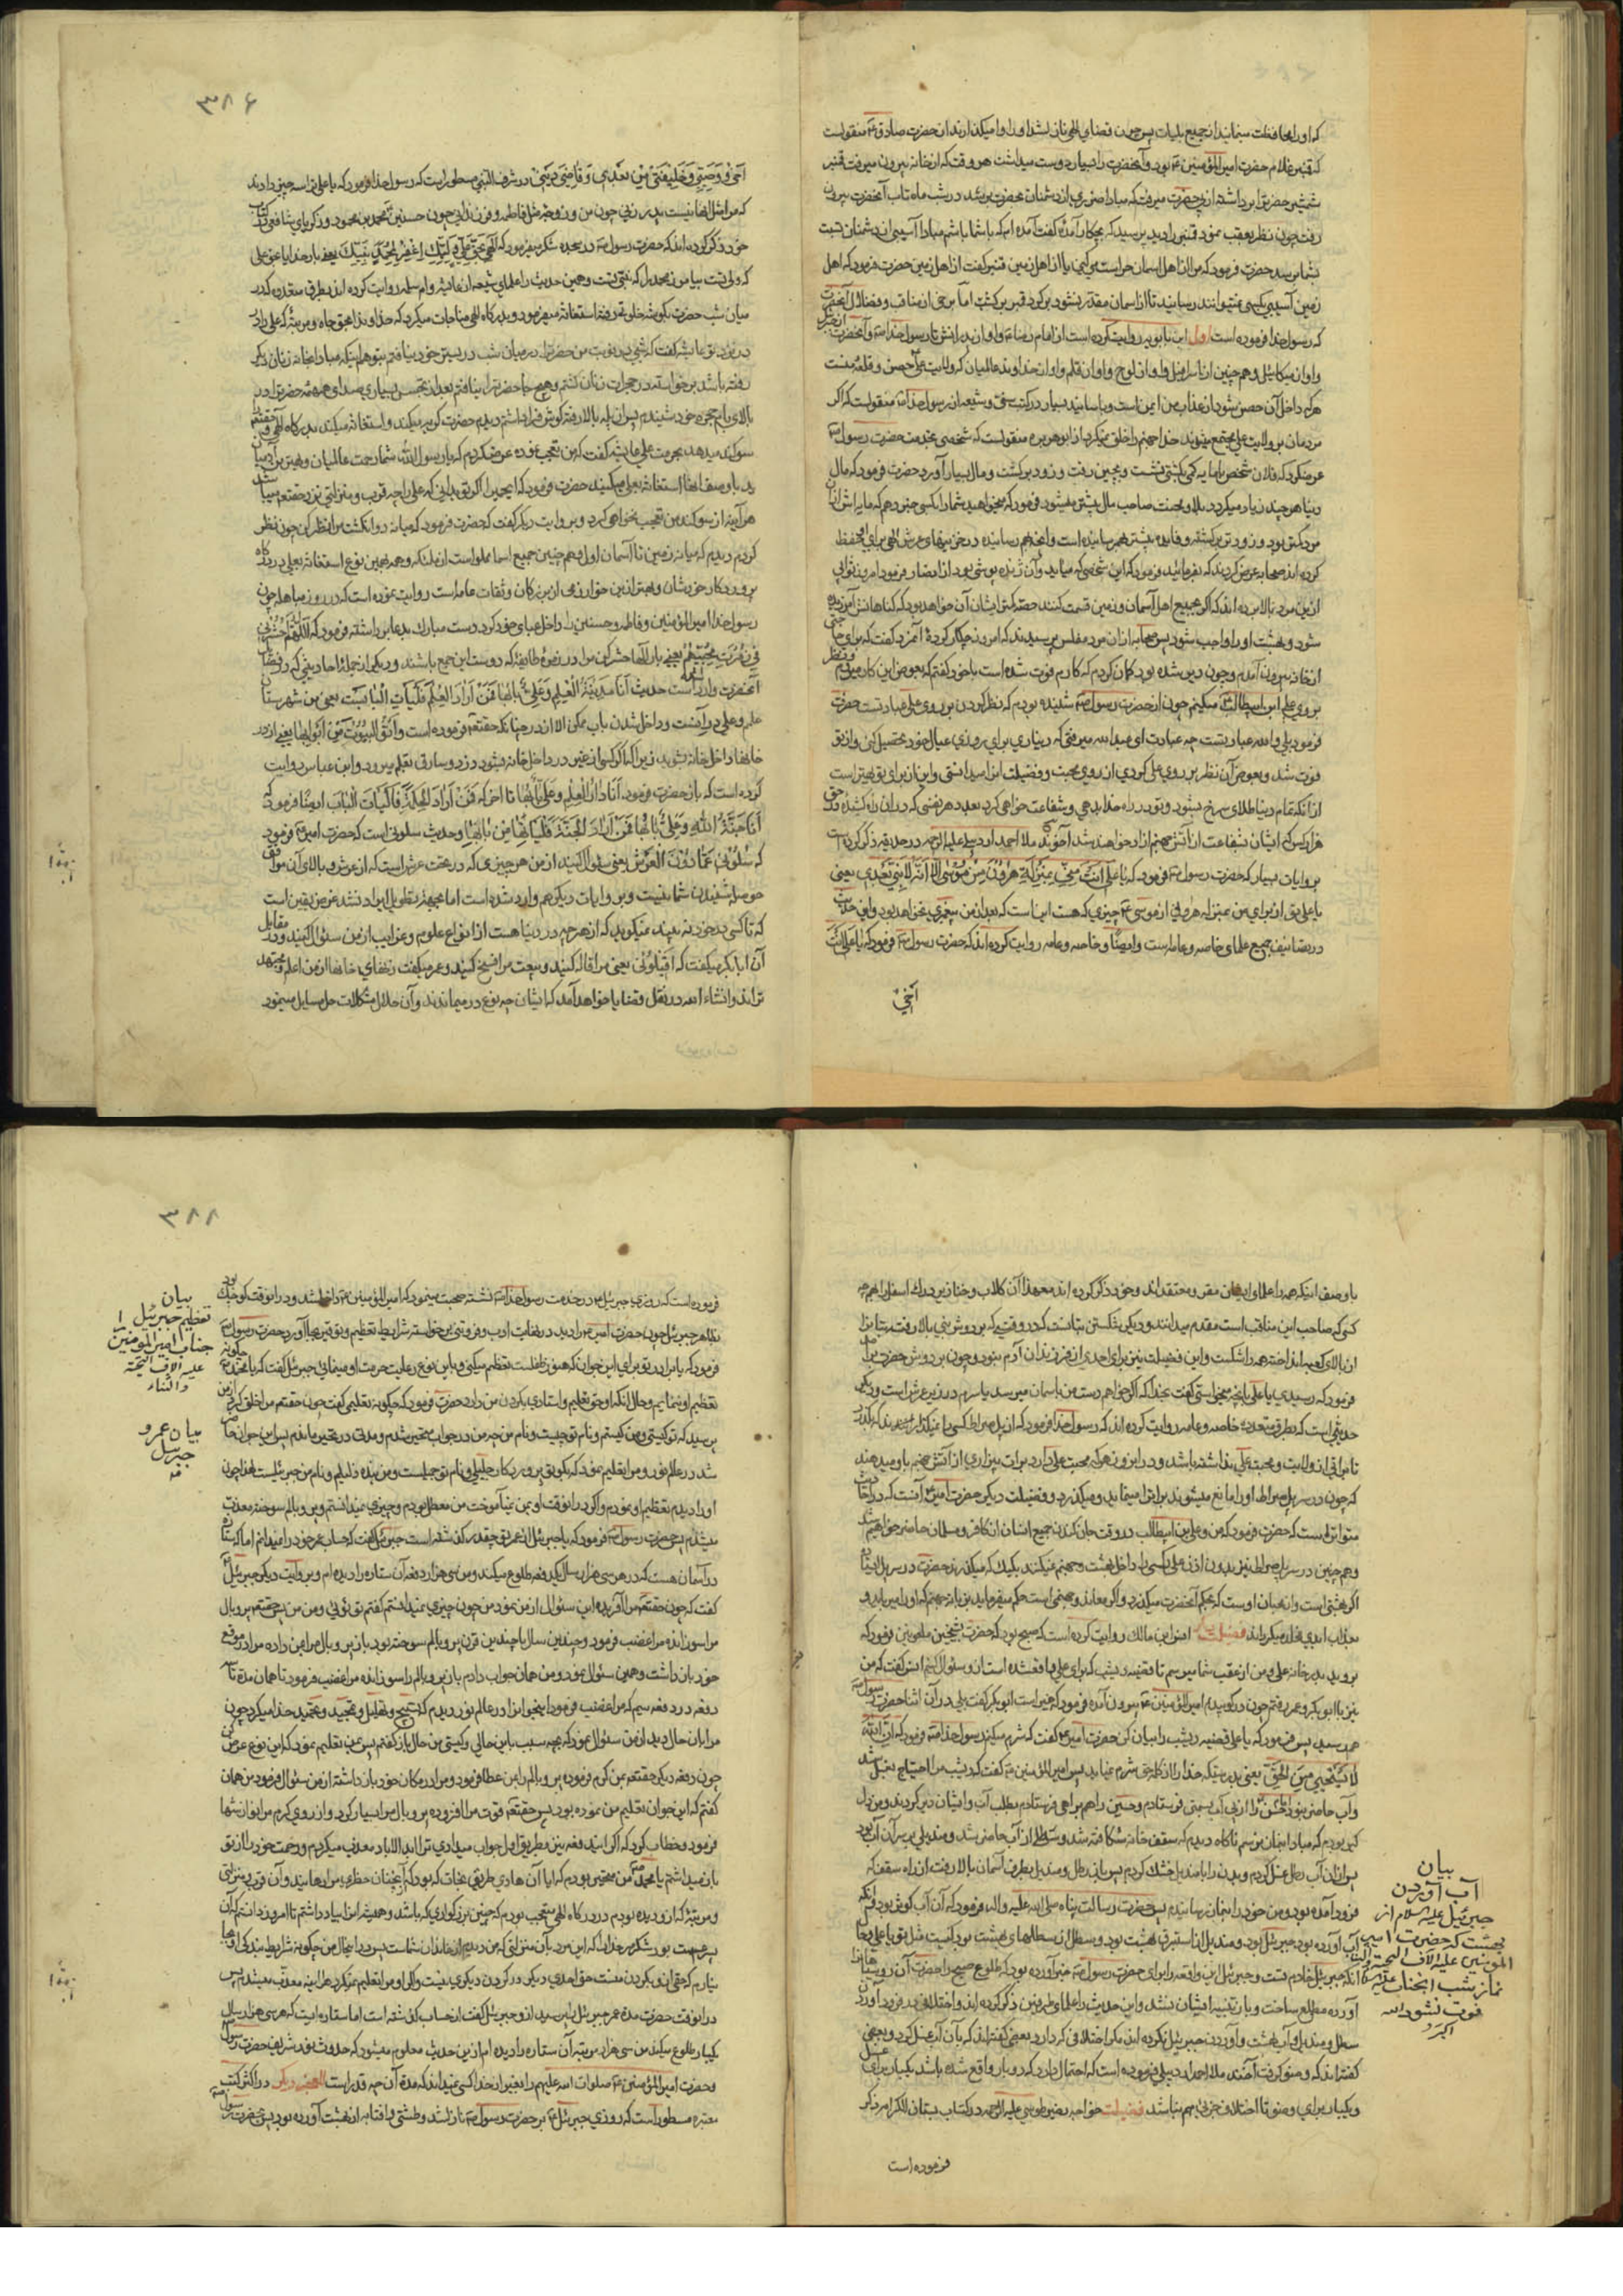 که او را محافظت مینمایند از جمیع بلیات پس چون قضای الهی نازل شد او را وا میگذارند از حضرت صادق ع منقولست
که قنبر غلام حضرت امیر المؤمنین ع بود و آنحضرت را بسیار دوست میداشت هر وقت که از خانه بیرون میرفت قنبر
شمشیر حضرت را برداشته از پی حضرت میرفت که مبادا ضرری از دشمنان بحضرت برسد در شب ماه تاب آنحضرت بیرون
رفت چون نظر بعقب نمود قنبر را دید پرسید که بچکار آمدۀ گفت آمده ام که با شما باشم مبادا آسیبی از دشمنان نسبت
بشما برسد حضرت فرمود که مرا از اهل اسمان حراست میکنی یا از اهل زمین قنبر گفت از اهل زمین حضرت فرمود که اهل
زمین آسیبی بکسی نمیتوانند رسانید تا از اسمان مقدر نشود برگرد قنبر برگشت اما برخی از مناقب و فضائل آنحضرت
که رسول خدا فرموده است اول ابن بابویه روایت کرده است از امام رضا ع و او از پدرانش تا رسول خدا ص و آنحضرت از جبرئیل
و او از میکائیل و هم چنین از اسرافیل و او از لوح و او از قلم و او از خداوند عالمیان که ولایت علی حصن و قلعۀ منست
هر که داخل آن حصن شود از عذاب من ایمن است و با سانید بسیار در کتب سنی و شیعه از رسول خدا ص منقولست که اگر
مردمان بر ولایت علی مجتمع میشدند خدا جهنم را خلق نمیکرد از ابوهریره منقولست که شخصی بخدمت حضرت رسول ص
عرض کرد که فلان شخص با مایه کمی بکشتی نشست و بچین رفت و زود برگشت و مال بسیار آورد حضرت فرمود که مال
دنیا هر چند زیاد میگردد بلا و محنت صاحب مال بیشتر میشود فرمود که میخواهید شما را بکسی خبر دهم که مایه اش از آن
مرد کمتر بود و زودتر برگشته و فایده بیشتر بهم رسانیده است و آنچه بهم رسانیده در خزینهای عرش الهی برای او محفظ
کرده اند صحابه عرض کردند که بفرمائید فرمود که این شخصی که میاید و آن ژنده پوشی بود از انصار فرمود امروز ثوابی
از این مرد بالا برده اند که اگر بجمیع اهل آسمان و زمین قسمت کنند حصه کمتر ایشان آن خواهد بود که گناهانش آمرزیده
شود و بهشت او را واجب شود پس صحابه از آن مرد مفلس پرسیدند که امروز چکار کردۀ آنمرد گفت که برای حاجتی
از خانه بیرون آمدم و چون دیر شده بود گمان کردم که کارم فوت شده است با خود گفتم که بعوض این کار میروم و نظر
بروی علی ابن ابیطالب ع میکنم چون از حضرت رسول ص شنیده بودم که نظر کردن بر روی علی عبادتست حضرت
فرمود بلی والله عبادتست چه عبادت ای عبدالله میرفتی که دیناری برای روزی عیال خود تحصیل کنی و از تو
فوت شد و بعوض آن نظر بر روی علی کردی از روی محبت و فضیلت او را میدانستی و این از برای تو بهتر است
از آنکه تمام دنیا طلای سرخ میبود و تو در راه خدا بدهی و شفاعت خواهی کرد بعدد هر نفسی که در آن راه کشیدۀ در حق
هزار کس که ایشان بشفاعت از آتش جهنم آزاد خواهند شد آخوند ملا احمد اردبیلی علیه الرحمه در حدیقه ذکر کرده است
بروایات بسیار که حضرت رسول ص فرمود که یا علی انت منی بمنزلة هرون من موسی الا انه لا نبی بعدی یعنی
یا علی تو از برای من بمنزله هرونی از موسی ع چیزی که هست این است که بعد از من پیغمبری نخواهد بود و این حدیث
در تصانیف جمیع علمای خاصه و عامه است و ایضا خاصه و عامه روایت کرده اند که حضرت رسول ص فرمود که یا علی انت
اخی
۳۸۶
اخی و وصیی و خلیفتی من بعدی و قاضی دینی در شرف النبی مسطور است که رسول خدا فرمود که یا علی ترا سه چیز دادند
که مرا مثل آنها نیست پدر زنی چون من و زوجه مثل فاطمه و فرزندانی چون حسنین محمد بن محمود و زکریای شافعی در کتاب
خود ذکر کرده اند که حضرت رسول ص در سجده شکر میفرمود که الهی بحق علی ولیک اغفر لمحمد نبیک یعنی بار خدایا بحق علی
که ولی تست بیامرز محمد را که نبی تست و همین حدیث را علمای شیعه از عایشه و ام سلمه روایت کرده اند بطرق متعدده که در
میان شب حضرت بگوشه خلوتی رفته استغاثه میفرمود و بدرگاه الهی مناجات میکرد که خداوندا بحق جاه و مرتبۀ که علی را در
در نزد تو عایشه گفت که شبی در نوبت من حضرت را در میان شب در بستر خود نیافتم بتوهم اینکه مبادا بخانه زنان دیگر
رفته باشد برخواسته در حجرات زنان گشتم و هیچ جا حضرت را نیافتم بعد از تجسس بسیاری صدای همهمه حضرت را در
بالای بام حجره خود شنیدم پس از پله بالا رفته گوش فرا داشتم دیدم حضرت گریه میکند و استغاثه میکند بدرگاه الهی و حقتعم
سوگند میدهد بحرمت علی عایشه گفت که من تعجب نموده عرض کردم که یا رسول الله شما رحمت عالمیان و بهترین آدمیان
هر آینه از سوگند من تعجب نخواهی کرد و بروایت دیگر گفت که حضرت فرمود که میانه دو انگشت مرا نظر کن چون نظر
کردم دیدم که میانه زمین تا آسمان اول و هم چنین جمیع اسمانها مملو است از ملائکه و همه بهمین نوع استغاثه بعلی در درگاه
پروردگار خودشان و بهتر از این خوارزمی از بزرگان و ثقات عامه است روایت نموده است که در روز مباهله چون
رسول خدا امیر المؤمنین و فاطمه و حسنین را داخل عبای خود کرد دست مبارک بدعا برداشته فرمود که اللهم احشرنی
فی زمرة محبیهم یعنی بار الها حشر کن مرا در زمرۀ طایفۀ که دوست این جمع باشند
آنحضرت وارد است حدیث انا مدینة العلم و علی بابها فمن اراد العلم فلیات الباب یعنی من شهرستان
علم و علی در آنست و داخل شدن باب ممکن الا از در چنانکه حقتعم فرموده است و أتوا البیوت من ابوابها یعنی از در
خانها داخل خانه شوید زیرا که اگر کسی از غیر در داخل خانه شود دزد و سارق بقلم میرود و ابن عباس روایت
کرده است که باز حضرت فرمود انا دار العلم و علی بابها تا اخر که فمن اراد الحکمة فلیات الباب ایضا فرمود که
انا جنة الله و علی بابها فمن اراد الجنة فلیاتها من بابها و حدیث سلونی است که حضرت امیر ع فرمود
که سلونی عما دون العرش یعنی سئوال کنید از من هر چیزی که در تحت عرش است که از عرش و بالای آن موافق
حوصله شنیدن شما نیست و بروایات دیگر هم وارد شده است اما بجهة تطویل ایراد نشد غرض یقین است
که تا کسی در خود نه بیند نمیگوید که از هر چه در دنیا هست از انواع علوم و غرایب از من سئوال کنید و در مقابل
آن ابابکر میگفت که اقیلونی یعنی مرا اقاله کنید و بیعت مرا فسخ کنید و عمر میگفت زنهای خانها از من اعلم و مجتهد
تراند و انشاء الله در نقل قضایا خواهد آمد که ایشان چه نوع در میماندند و آن حلال مشکلات حل مسایل مینمود
با وصف اینکه همه را علمای ایشان مقر و معتقد اند و خود ذکر کرده اند معهذا آن کلاب و خنازیر درک اسفل را بهر چه
کسی که صاحب این مناقب است مقدم میدانند و دیگر شکستن بتانست که در وقتی که بر دوش نبی بالا رفت و بتانرا
از بالای کعبه انداخته همه را شکست و این فضیلت نیز برای احدی از فرزندان آدم نبود و چون بر دوش حضرت بر آمد
فرمود که رسیدی یا علی بانچه میخواستی گفت بخدا که اگر خواهم دست من باسمان میرسد یا سرم در زیر عرش است و دیگر
حدیثی است که بطرق متعدده خاصه و عامه روایت کرده اند که رسول خدا فرمود که از پل صراط کسی را نمیگذارند که بگذرد
تا براتی از ولایت و محبت علی نداشته باشد و در آنروز هر که محبت علی دارد برات بیزاری از آتش جهنم باو میدهند
متواتر است که حضرت فرمود که من و علی بن ابیطالب در وقت جان کندن جمیع انسان از کافر و مسلمان حاضر خواهیم شد
و هم چنین در سر پل صراط نیز بدون اذن علی کسی را داخل بهشت و جهنم نمیکنند
اگر بهشتی است و از محبان اوست که بحکم آنحضرت میگذرد و اگر معاند و جهنمی است حکم میفرماید بزبانه جهنم که او را میرباید و
بعذاب ابدی گرفتار میگرداند فضیلت دیگر انس ابن مالک روایت کرده است که صبح بود که حضرت بشیخین ملعونین فرمود که
بروید بدر خانه علی و من از عقب شما میرسم تا قضیه دیشب که برای علی واقع شده است از او سئوال کنیم انس گفت که من
نیز با ابوبکر و عمر رفتم چون در کوبیدم امیر المؤمنین ع بیرون آمده فرمود که خیر است ابوبکر گفت بلی در آن اثنا حضرت رسول ص
هم رسید پس فرمود که یا علی قضیه دیشب را بیان کن حضرت امیر ع گفت که شرم میکنم رسول خدا ص فرمود که ان الله
لا یستحیی من الحق یعنی بدرستیکه خدا را از کار حق شرم نماید پس امیر المؤمنین ع گفت که دیشب مرا احتیاج بغسل شد
و آب حاضر نبود حسن را از پی آب بسمتی فرستادم و حسین را هم براهی فرستادم بطلب آب و ایشان دیر کردند و من دل
گیر بودم که مبادا نماز نرسم ناگاه دیدم که سقف خانه شکافته شد و سطلی از آب حاضر شد و مندیلی بر سر آن آب بود
پس از آن آب غسل کردم و بدن را با مندیل خشک کردم پس باز سطل و مندیل بطرف آسمان بالا رفت از راه سقف که
فرود آمده بود و من خود را بنماز رسانیدم پس حضرت رسالت پناه صلی الله علیه و اله فرمود که آن آب کوثر بود و آنکه
آب آورده بود جبرئیل بود و مندیل از استبرق بهشت بود و سطل از سطلهای بهشت بود کیست مثل تو یا علی در حالی
آورده مطلع ساخت و باز تنبیه ایشان نشد و این حدیث را علمای طرفین ذکر کرده اند و اختلافی در فرود آوردن
سطل و مندیل و آب بهشت و آوردن جبرئیل نکرده اند مگر اختلافی که دارد بعضی گفته اند که بآن آب غسل کرد و بعضی
گفته اند که وضو گرفت آخوند ملا احمد اردبیلی فرموده است که احتمال دارد که دو بار واقع شده باشد یکبار برای غسل
و یکبار برای وضو تا اختلاف خبر بهم نباشد فضیلت خواجه نصیر طوسی علیه الرحمه در کتاب بستان الکرام ذکر
فرموده است
بیان
آب آوردن
جبرئیل علیه السلام از
بهشت که حضرت امیر
المؤمنین علیه الاف التحیه و الثنا
نماز شب انجناب
فوت نشود الله
اکبر
۳۸۸
فرموده است که روزی جبرئیل ع در خدمت رسول خدا ص نشسته صحبت مینمود که امیر المؤمنین ع داخل شد و در آنوقت کوچک بود
بظاهر جبرئیل چون حضرت امیر ع را دید در نهایت ادب و فروتنی برخواسته شرایط تعظیم و توقیر بجا آورد حضرت رسول ص
فرمود که یا برادر تو برای این جوان که هنوز طفلست تعظیم میکنی و باین نوع رعایت حرمت او مینمائی جبرئیل گفت که یا محمد چگونه
تعظیم او ننمایم و حال آنکه او حق تعلیم و استادی بگردن من دارد حضرت فرمود که چگونه تعلیمی گفت چون حقتعم مرا خلق کرد از من
پرسید که تو کیستی و من کیستم و نام تو چیست و نام من چه من در جواب متحیر شدم و مدتی در تحیر ماندم پس این جوان حاضر
شد در عالم نور و مرا تعلیم نمود که بگو تو پروردگار جلیلی و نام تو جمیلست و من بنده ذلیلم و نام من جبرئیلست لهذا چون
او را دیدم تعظیم او نمودم و اگر در آنوقت او بمن نمیآموخت من معطل بودم و چیزی نمیدانستم و پر و بالم سوخته معذب
میشدم پس حضرت رسول ص فرمود که یا جبرئیل از عمر تو چقدر گذشته است جبرئیل گفت که حساب عمر خود را نمیدانم اما ستارۀ
در آسمان هست که در هر سی هزار سال یکدفعه طلوع میکند و من سی هزار دفعه آن ستاره را دیده ام و بروایت دیگر جبرئیل
گفت که چون حقتعم مرا آفریده این سئوال از من نمود من چون چیزی نمیدانستم گفتم تو توئی و من من پس حقتعم پر و بال
مرا سوزانده مرا غضب فرمود و چندین سال یا چندین قرن پر و بالم سوخته بود باز پر و بال مرا بمن داده مرا در موقع
خود باز داشت و همین سئوال نمود و من همان جواب دادم باز پر و بالم را سوزانده مرا غضب فرمود تا همان مدة تا
دفعه در دفعه سیم که مرا غضب فرمود این جوانرا در عالم نور دیدم که تسبیح و تهلیل و تمجید و تحمید خدا میکرد چون
مرا بآن حال دید از من سئوال نمود که بچه سبب باین حالی و کیستی من حال باز گفتم پس بمن تعلیم نمود که این نوع عرض کن
چون دفعه دیگر حقتعم بمن کرم فرموده پر و بالم را بمن عطا فرمود و مرا در مکان خود باز داشته از من سئوال فرمود من همان
گفتم که این جوان تعلیم من نموده بود پس حقتعم قوت مرا افزوده پر و بال مرا بسیار کرد و از روی کرم مرا نوازشها
فرمود و خطاب کرد که اگر ایندفعه نیز بطریق اول جواب میدادی ترا ابد الاباد معذب میکردم و رحمت خود را از تو
و مرتبۀ که از و دیده بودم در درگاه الهی متعجب بودم که چنین بزرگواری که باشد و همیشه او را بیاد داشتم تا امروز دانستم که آن
نیارم که حقی از و بگردن منست حق احدی دیگر در گردن دیگری نیست و اگر او مرا تعلیم نمیکرد هر آینه معذب میشدم پس
در آنوقت حضرت مدة عمر جبرئیل را پرسید از و جبرئیل گفت از حساب گذشته است اما ستاره ایست که هر سی هزار سال
یکبار طلوع میکند من سی هزار مرتبه آن ستاره را دیده ام از این حدیث معلوم میشود که حدوث نور شریف حضرت رسول
و حضرت امیر المؤمنین ع صلوات الله علیهم را بغیر از خدا کسی نمیداند که مدة آن چه قدر است در اکثر کتب
معتبره مسطور است که روزی جبرئیل ع بر حضرت رسول ص نازل شد و طشتی و افتابه از بهشت آورده بود پس حضرت رسول ص
بیان
تعظیم جبرئیل
جناب امیر المومنین
علیه الاف التحیة
والثناء
بیان عمر و
جبرئیل